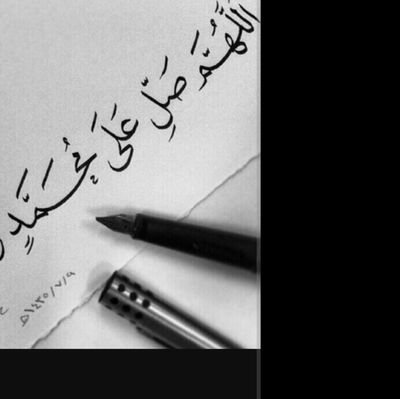 اللَّهُمَّ صَلِّ عَلَى مُحَمَّدٍ
١٤٣٥/٧/٩هـ